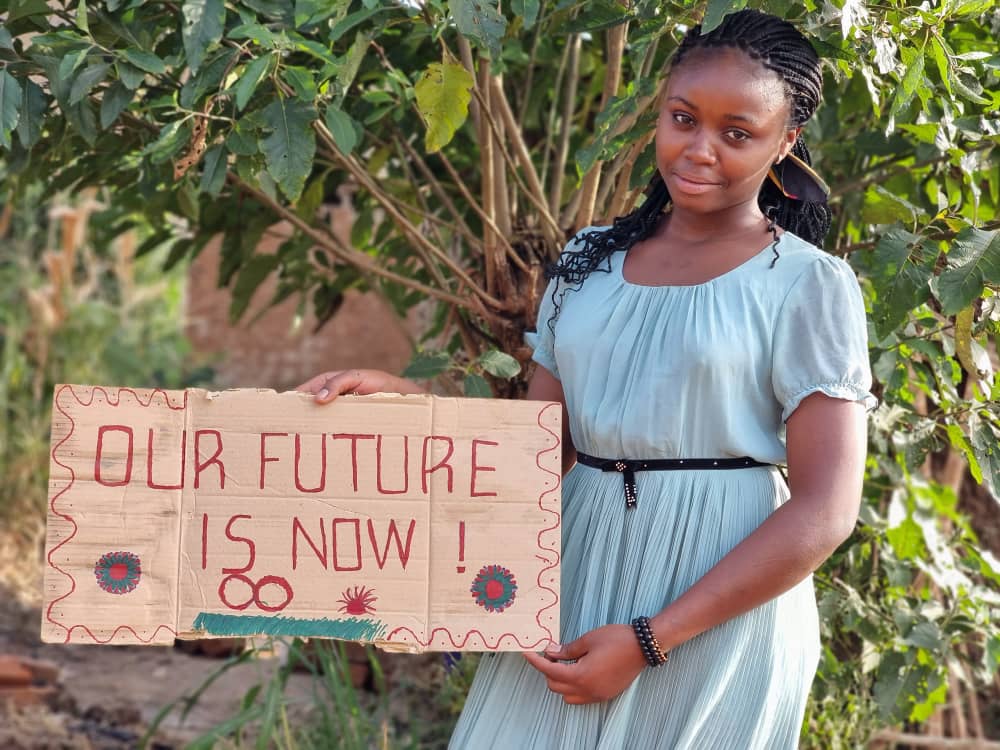 OUR FUTURE
IS NOW !